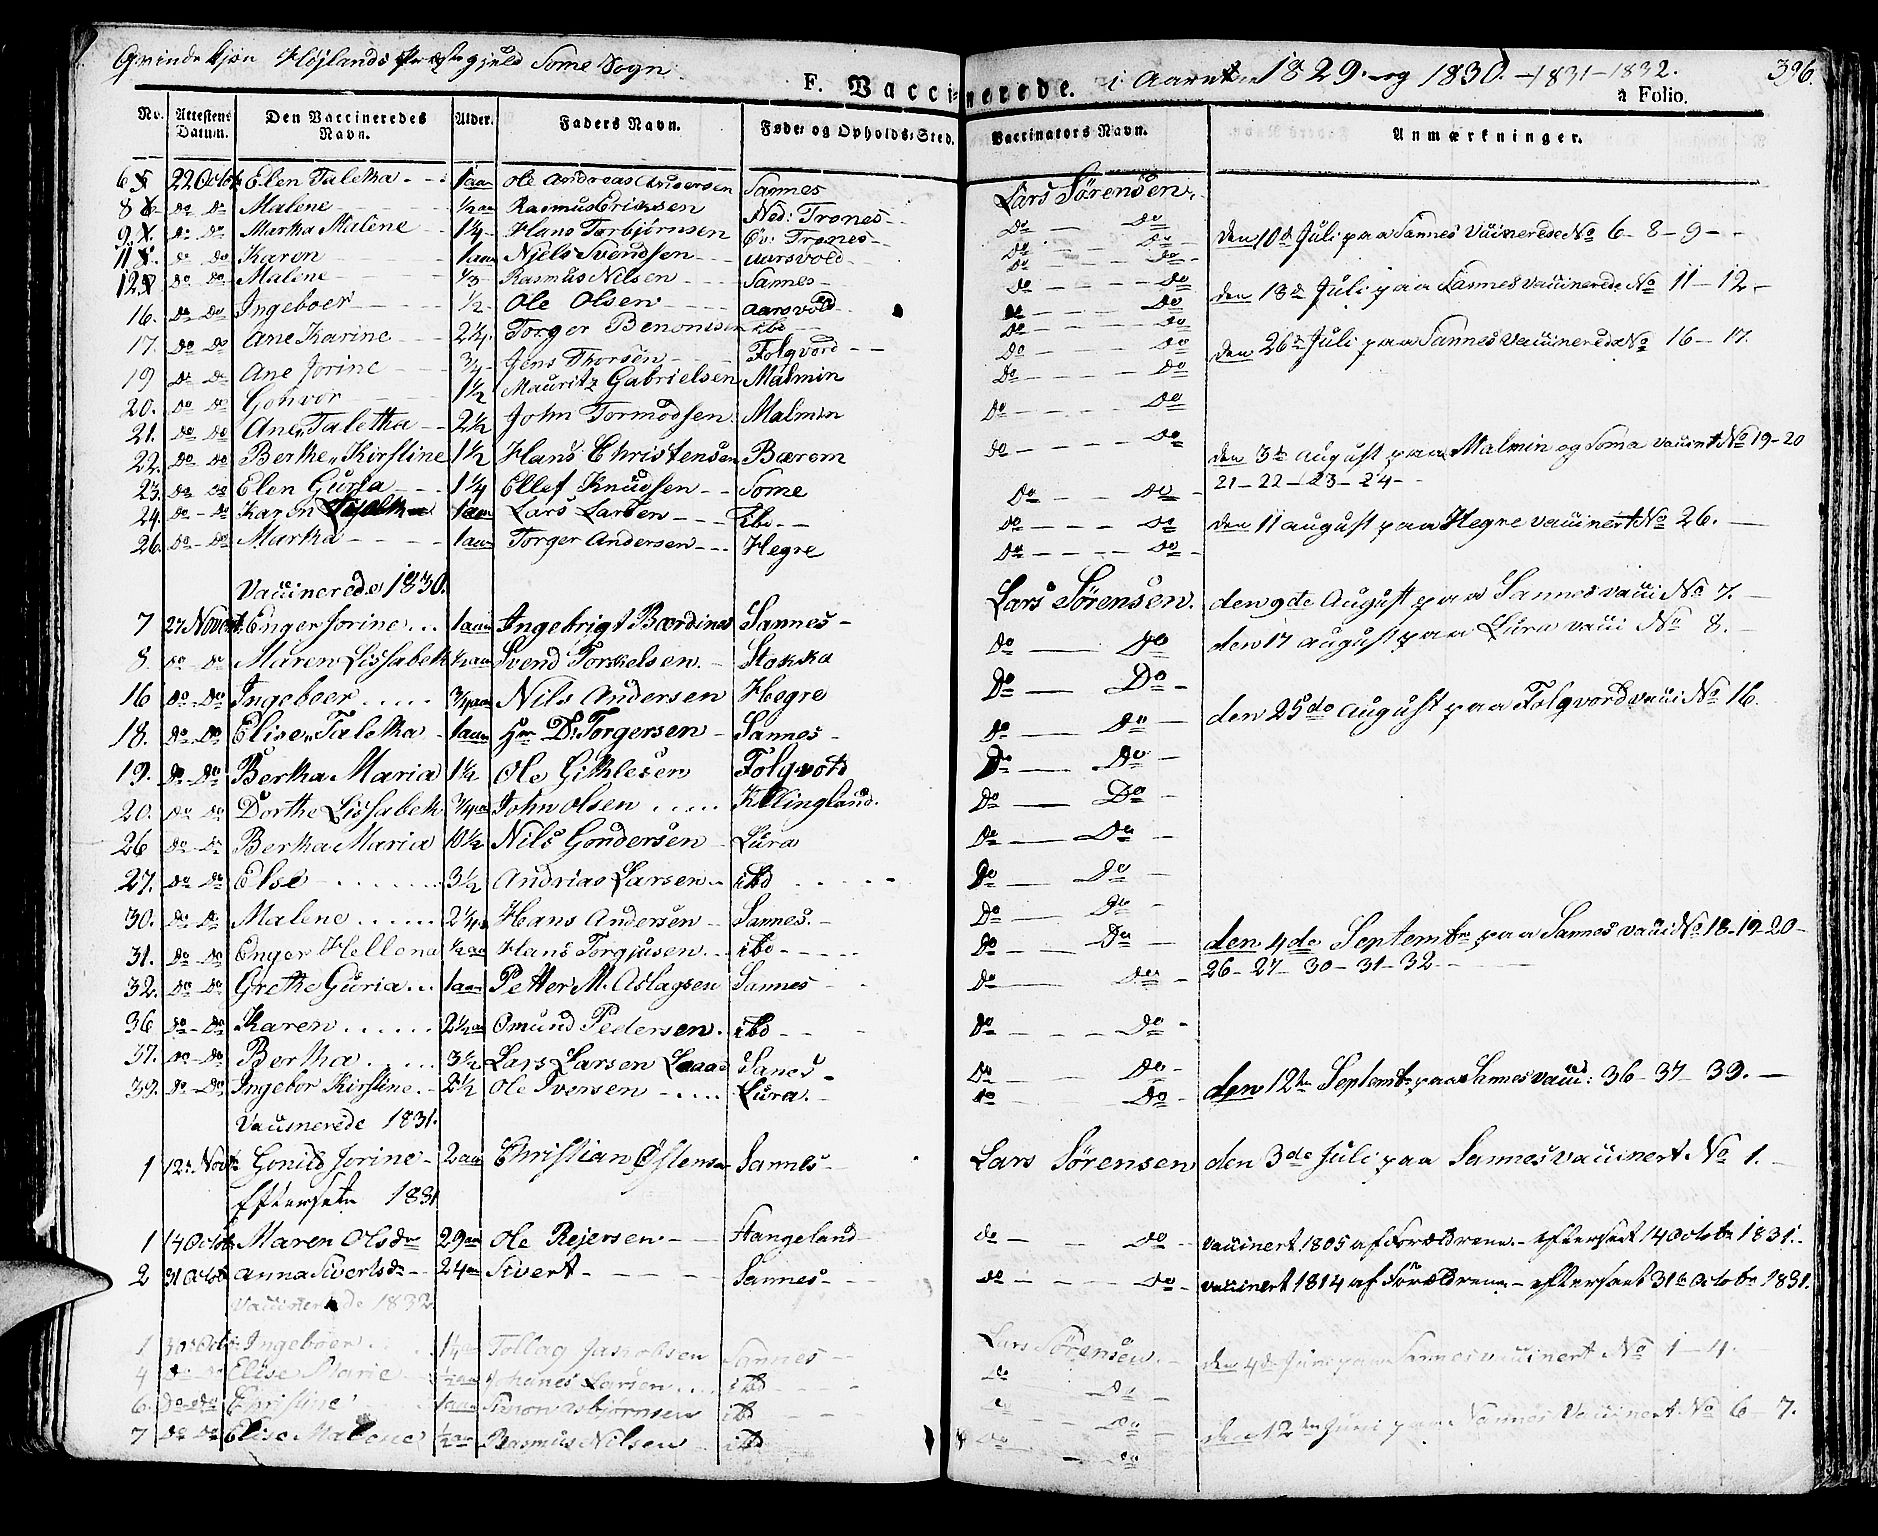 Qvindekjøn Højlands Præstegjeld Some Sogn.
F. Vaccinerede. i Aaret 1829. og 1830. - 1831 - 1832. 396.
a Folio.
No. Attestens Datum. Den Vaccineredes Navn. Alder. Faders Navn. Føde- og Opholds-Sted. Vaccinators Navn. Anmærkninger.
6 22 Octob Elen Taletha 1 aar Ole Andreas Andersen Sannes Lars Sørensen
8 do do Malene 1/2 aar Rasmus Eriksen Ned: Trones do do
9 do do Martha Malene 1 1/4 Hans Torbjørnsen Øv: Trones do do den 10de Juli paa Sannes Vaccinerede No 6 - 8 - 9 -
11 do do Karen 1 aar Niels Svendsen Aarsvold do do
12 do do Malene 1/3 Rasmus Nilsen Sannes do do den 18de Juli paa Sannes vaccinerede No 11 - 12 -
16. do do Ingeboer 1/2 Ole Olsen Aarsvold do do
17. do do Ane Karine 2 1/4 Torger Benonisen ibd do do den 26de Juli paa Sannes Vaccinerede No 16 - 17.
19 do do Ane Jorine 3/4 Jens Thorsen Folqvord do do
20. do do Gonvor 1 1/2 Mauritz Gabrielsen Malmin do do
21. do do Ane Taletha 2 1/2 John Tormodsen Malmin do do
22. do do Berthe Kirstine 1 1/2 Hans Christensen Bærom do do den 3de august paa Malmin og Soma vaccinert No 19 - 20
23. do do Elen Guria 1 1/4 Ellef Knudsen Some do do 21 - 22 - 23 - 24 -
24. do do Karen 1 aar Lars Larsen ibd do do den 11 august paa Hegre vaccinert No 26.
26. do do Martha 1 aar Torger Andersen Hegre do do
Vaccinerede 1830.
7 27 Novemb Enger Jorine 1 aar Ingebrigt Bærdines Sannes Lars Sørensen. den 9de August paa Sannes vacci No 7.
8 do do Maren Lissabeth 1/2 aar Svend Torkelsen Stokka do do den 17 august paa Lura vacci No 8.
16 do do Ingeboer 3/4 aar Nils Andersen Hegre Do Do
18. do do Elise Taletha 1 aar Hr D: Torgersen Sannes do do den 25de august paa Folqvord vacci No 16.
19. do do Bertha Maria 1 1/2 Ole Githlesen Folqvord Do Do
20. do do Dorthe Lissabeth 3/4 aar John Olsen Killingland. do Do
26 do do Bertha Maria 10 1/2 Nils Gondersen Lura do Do
27. do do Else 3 1/2 Andrias Larsen ibd do do
30. do do Malene 2 1/4 Hans Andersen Sannes. Do do
31. do do Enger Hellena 1/2 aar Hans Torgiusen ibd do Do den 4de Septembr paa Sannes vacci No 18 - 19 - 20 -
32. do do Grethe Guria 1 aar Petter M. Aslagsen Sannes do do 26 - 27 - 30 - 31 - 32
36 do do Karen 2 1/2 aar Omund Pedersen ibd do do
37. do do Bertha 3 1/2 Lars Larsen Sanes do do
39. do do Ingebor Kirstine 2 1/2 Ole Ivensen Lura. do do den 12te Septembr paa Sannes vacci: 36 - 37 - 39.
Vaccinerede 1831.
1 12te Novb Gonild Jorine 2 aar Christian Østensen Sannes Lars Sørensen den 3de Juli paa Sannes vaccinert No 1.
Efterseete 1831
1 14 Octob Maren Olsdr 29 aar Ole Rejersen Stangeland do do vaccinert 1805 af Forældrene. - efterseet 14 Octobr 1831.
2 31 Octob Anna Sivertsdr 24 aar Sivert Sannes do do vaccinert 1814 af Forældrene - efterseet 31te Octobr 1831.
Vaccinerede 1832
1 30 Octob Ingeboer 1 1/4 Tollag Jacobsen Sannes Lars Sørensen. den 4de Juni paa Sannes vaccinert No 1 - 4.
4 do do Elise Marie 1/2 aar Johanes Larsen ibd do do
6. do do Christine 1 aar Simon Asbjørnsen ibd do do den 12te Juni paa Sannes Vaccinert No 6 - 7.
7 do do Elise Malene 1/2 aar Rasmus Nilsen ibd do do